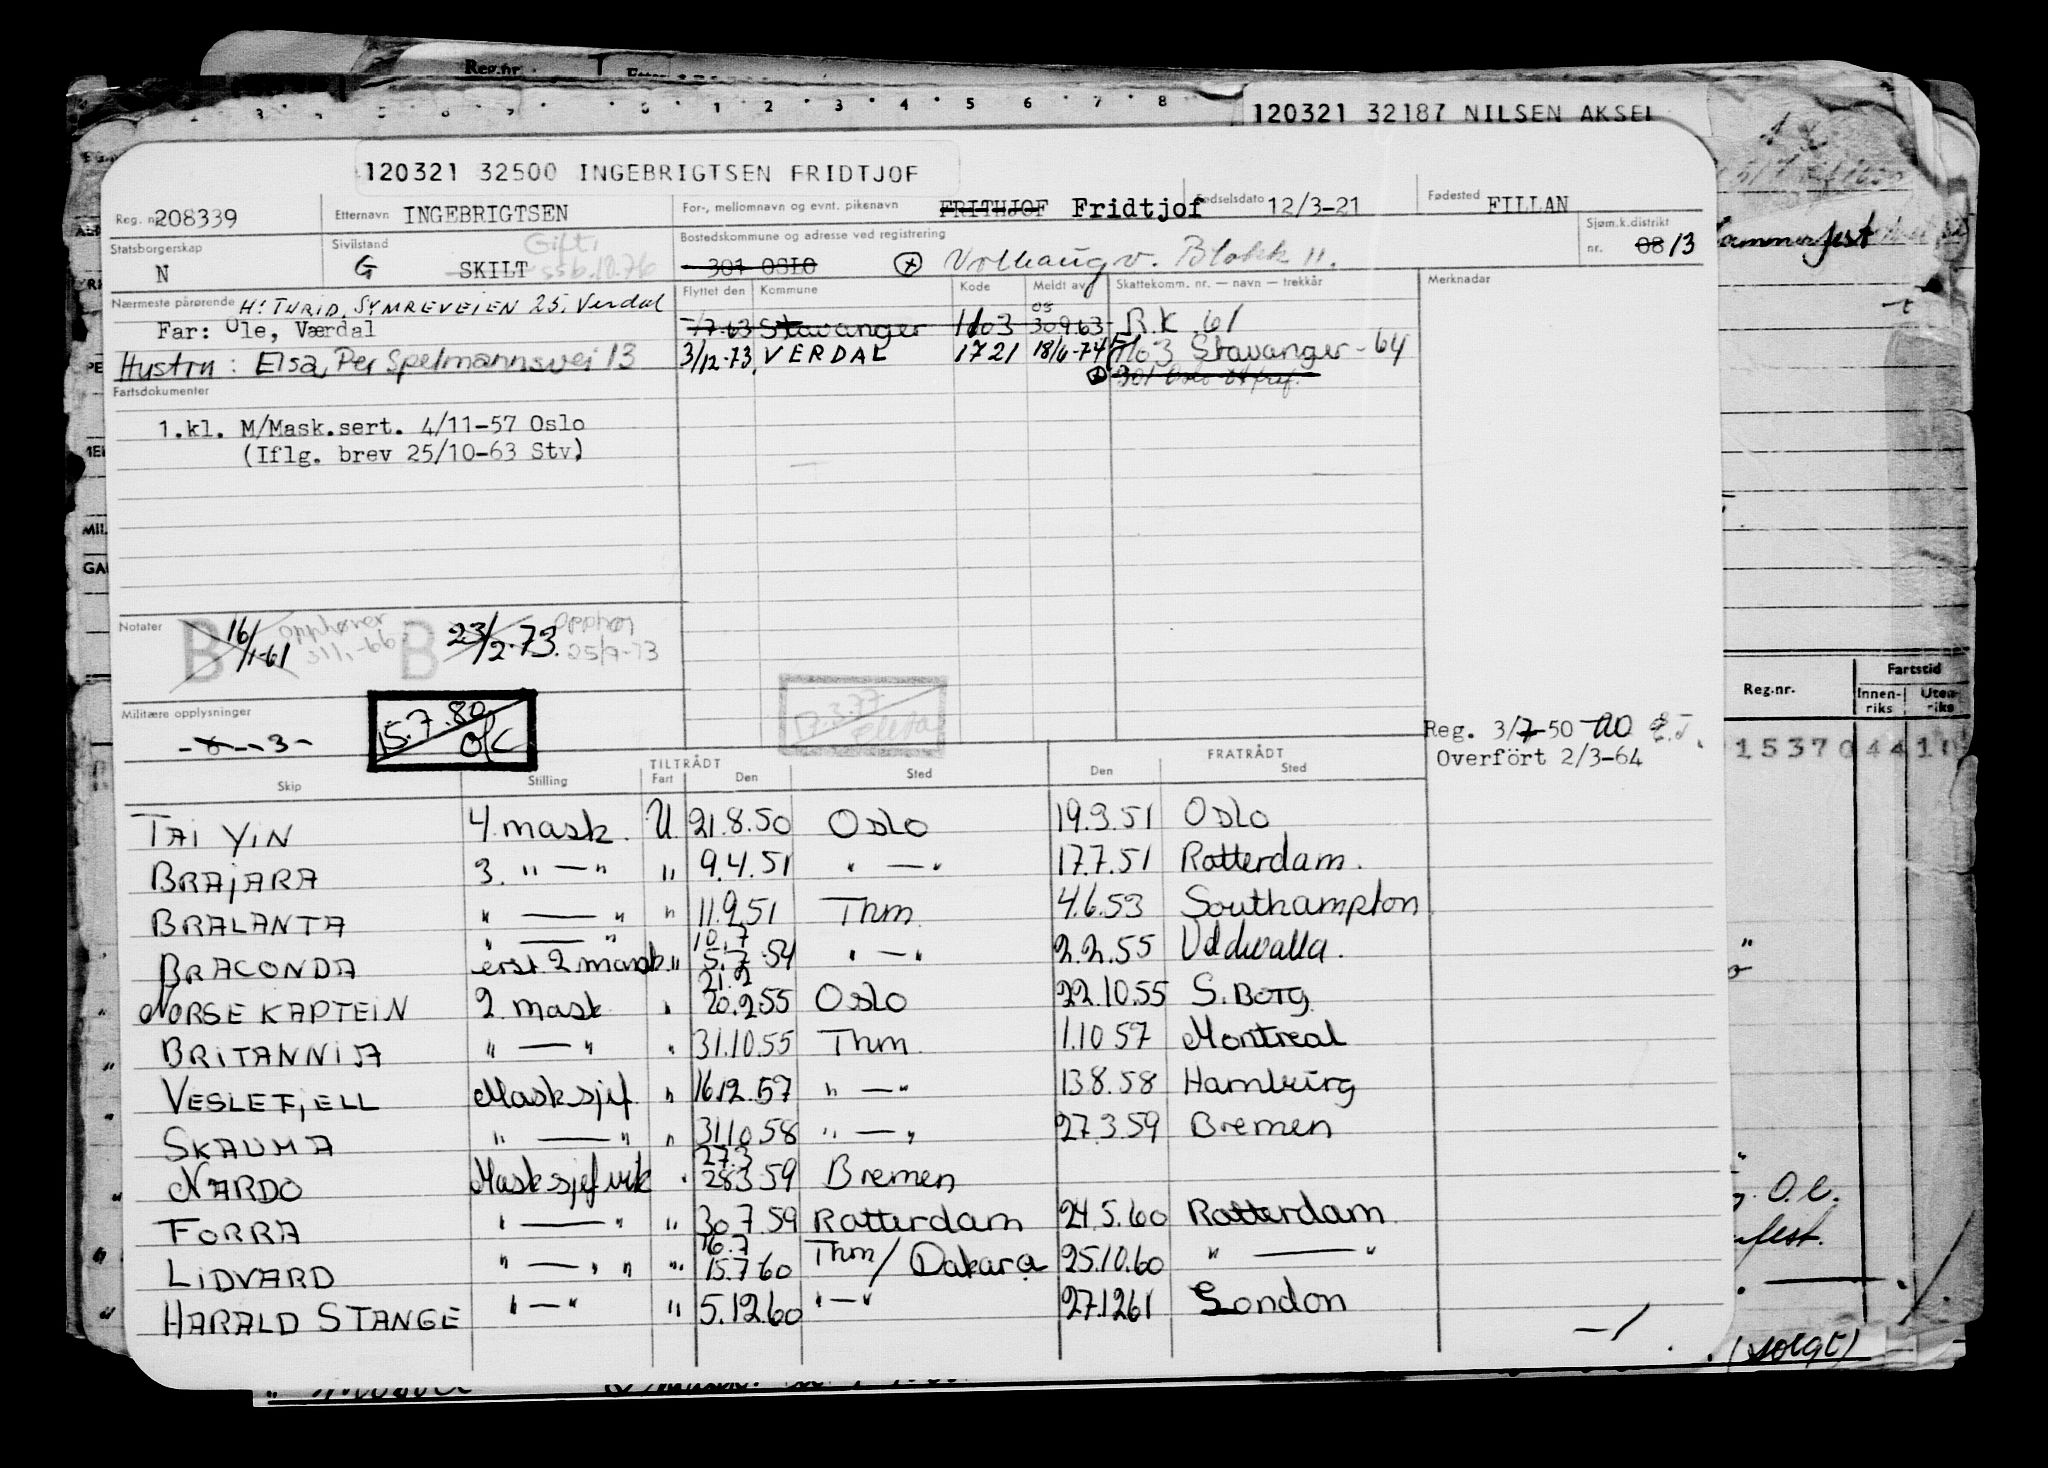 Reg.nr.
3 4 5 6 7 8 9 0 1 2 3 4 5 6 7 8
120321 32187 NILSEN AKSEL
120321 32500 INGEBRIGTSEN FRIDTJOF
Reg. nr. 208339 Etternavn INGEBRIGTSEN For-, mellomnavn og evnt. pikenavn FRITHJOF Fridtjof Fødselsdato 12/3-21 Fødested FILLAN
Statsborgerskap N Sivilstand G SKILT Gift, 10.76 Bostedskommune og adresse ved registrering 301 OSLO Volhaugv. Blokk 11. Sjøm.k.distrikt nr. 08 13
Hammerfest
Nærmeste pårørende H: TURID, SYMREVEIEN 25, Verdal
Far: Ole, Værdal
Hustru: Elsa, Per Spelmannsvei 13
Flyttet den Kommune Kode Meldt av Skattekomm. nr. — navn — trekkår Merknader
7/7-63 Stavanger 1103 30.9.63 R.K. 61
3/12-73, VERDAL 1721 18/6-74 1103 Stavanger - 64
301 Oslo
Fartsdokumenter
1.kl. M/Mask.sert. 4/11-57 Oslo
(Iflg. brev 25/10-63 Stv)
Notater B 16/1-61 opphører 31/1-66 B 23/2-73. Opphør 25/9-73
Militære opplysninger
- 8 - - 3 -
15.7.80
7.3.77
Reg. 3/7-50
Overført 2/3-64
Reg.nr. Fartstid
Innen-riks Uten-riks
15370 44 10
Skip Stilling TILTRÅDT Fart Den Sted FRATRÅDT Den Sted
TAI YIN 4. mask. U. 21.8.50 Oslo 19.3.51 Oslo
BRAJARA 3. " — " " 9.4.51 " — " 17.7.51 Rotterdam.
BRALANTA " — " " 11.9.51 Thm. 4.6.53 Southampton
BRACONDA " — " erst. 2 mask " 10.7 5.7.54 " — " 2.2.55 Uddevalla.
NORSE KAPTEIN 2. mask " 21.2 20.2.55 Oslo 22.10.55 S. Borg
BRITANNIA " — " " 31.10.55 Thm. 1.10 57 Montreal
VESLEFJELL Masksjef " 16.12.57 " — " 13.8.58 Hamburg
SKAUMA " — " " 31.10.58 " — " 27.3.59 Bremen
NARDO Masksjef vik " 27.3 28.3.59 Bremen
FORRA " — " " 30.7.59 Rotterdam 24.5.60 Rotterdam
LIDVARD " — " " " 16.7 15.7.60 Thm / Dakara 25.10.60 " — "
HARALD STANGE " — " " 5.12.60 " — " 27.12.61 London
(solgt)